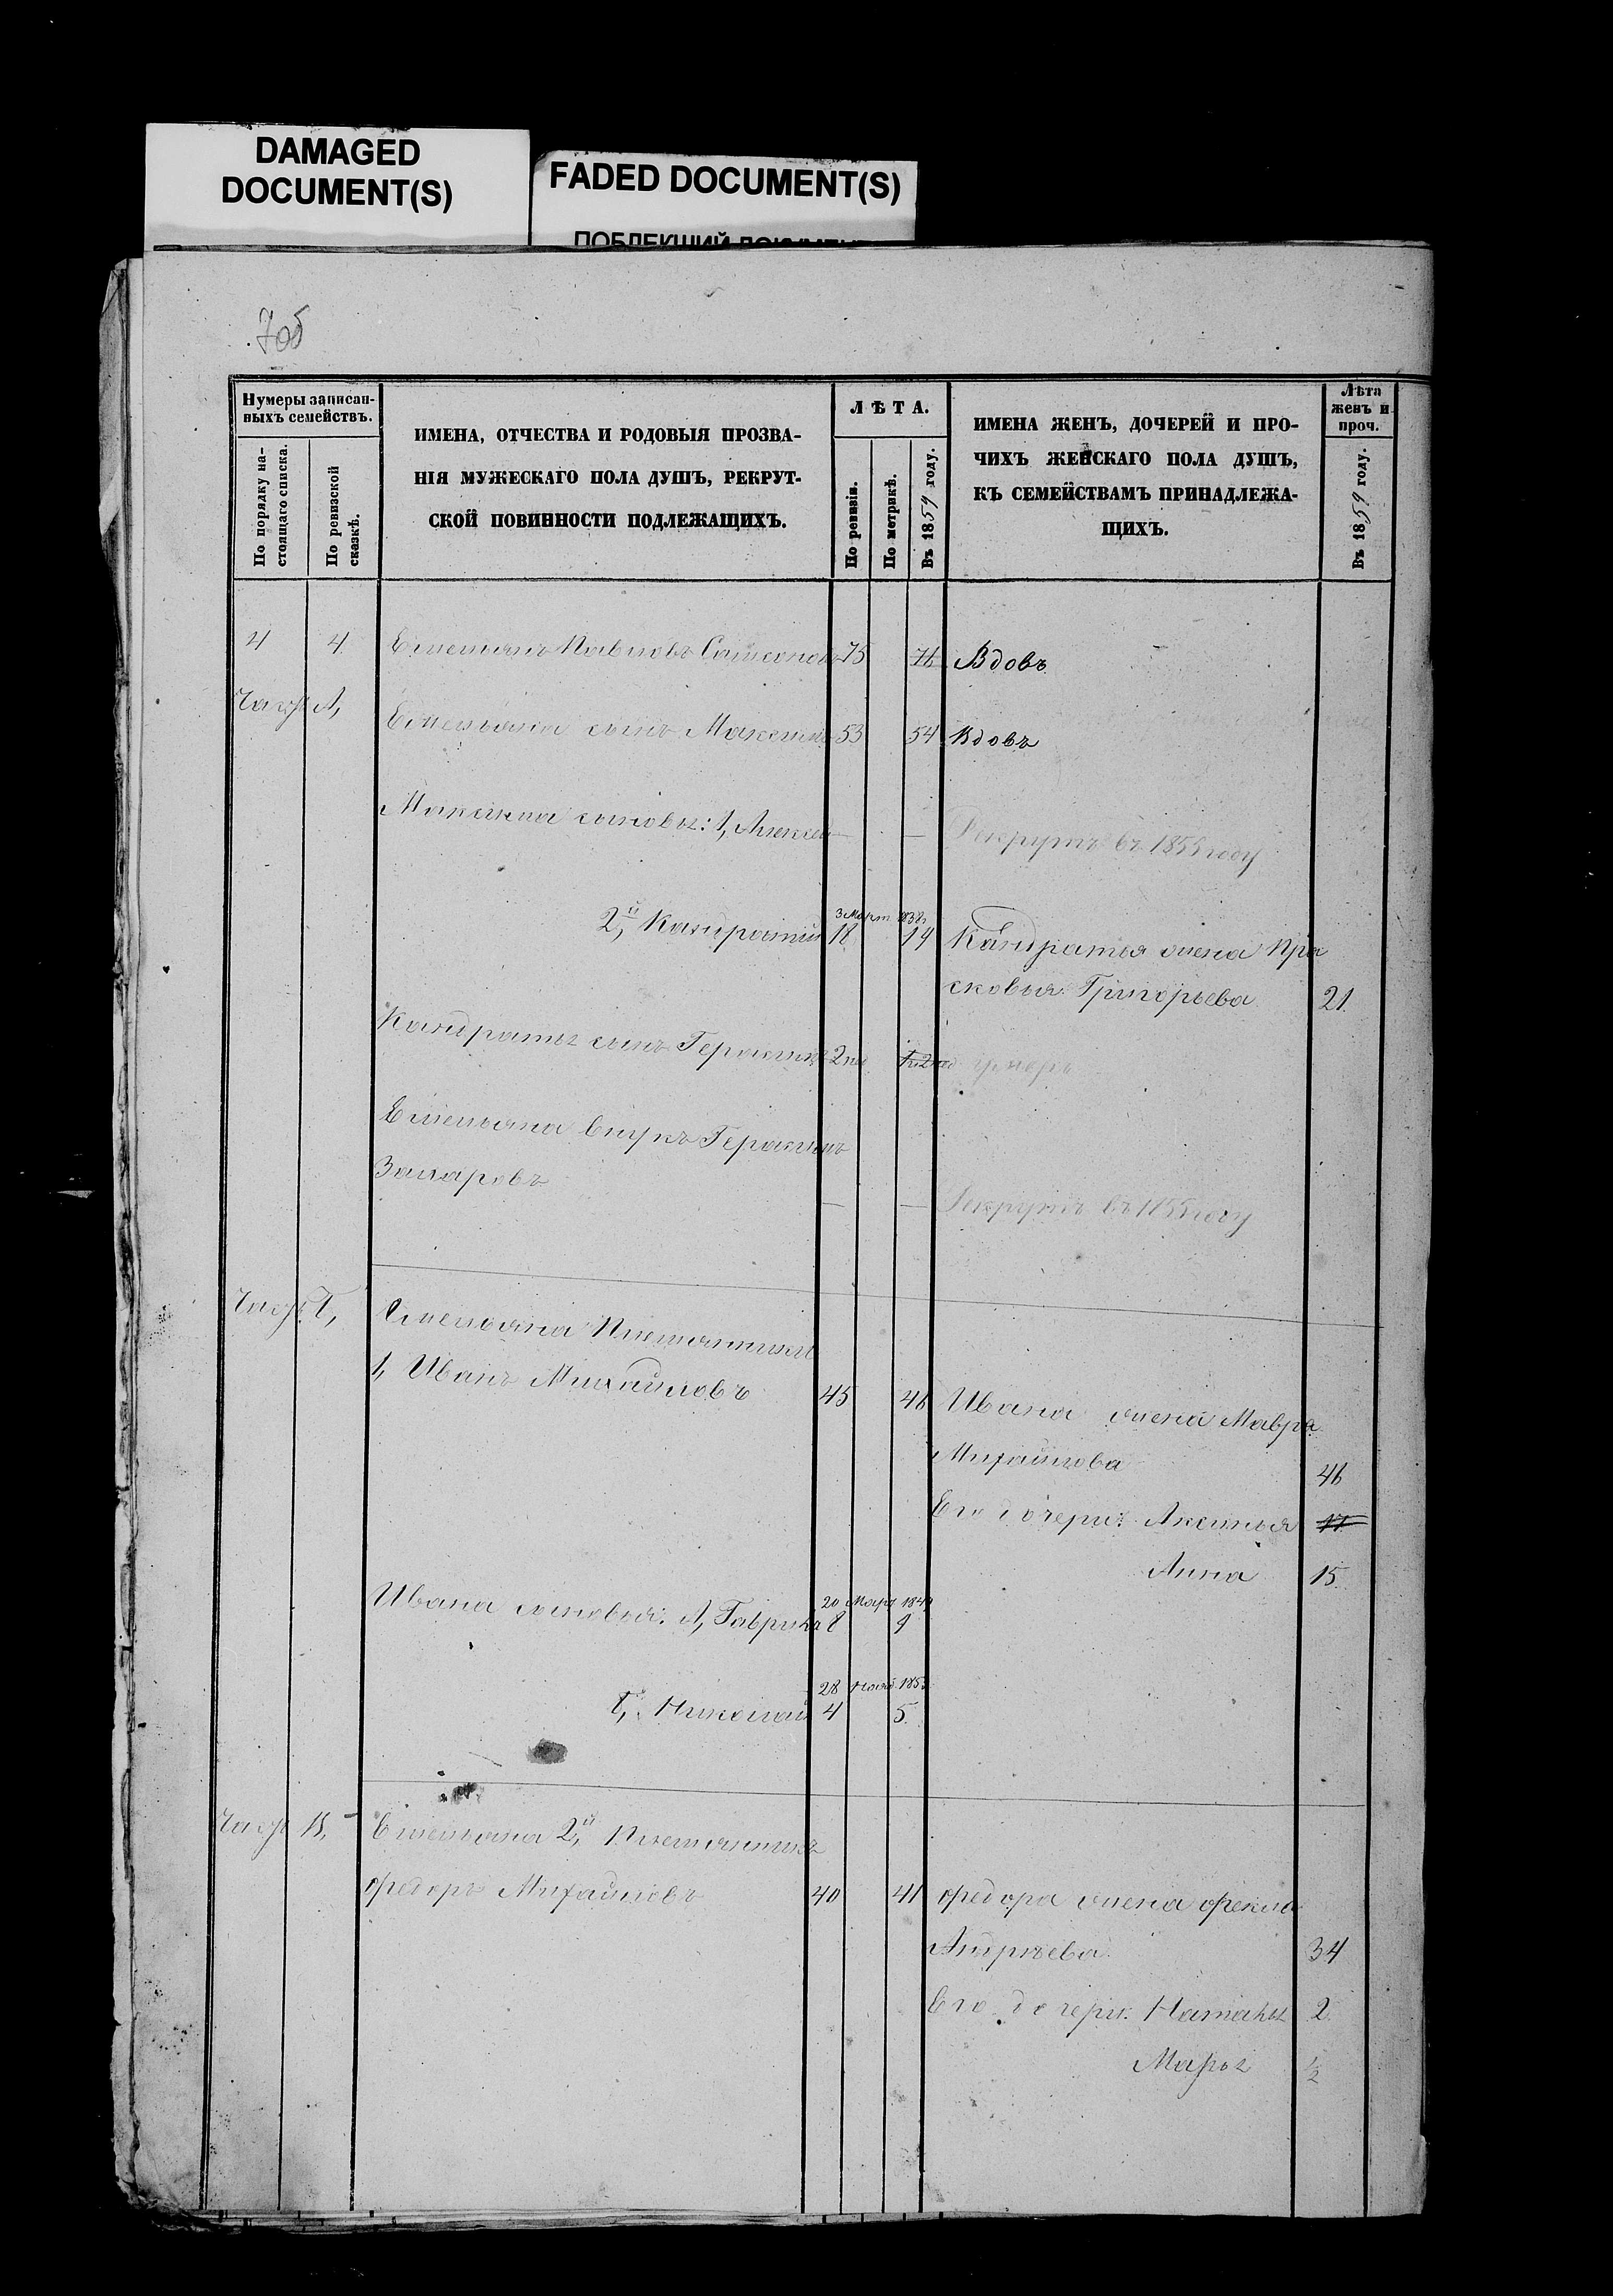 DAMAGED
DOCUMENT(S)
FADED DOCUMENT(S)
705
Нумеры записан-
ныхъ семействъ.
По порядку на-
стоящаго списка.
По ревизской
сказкѣ.
ИМЕНА, ОТЧЕСТВА И РОДОВЫЯ ПРОЗВА-
НІЯ МУЖЕСКАГО ПОЛА ДУШЪ, РЕКРУТ-
СКОЙ ПОВИННОСТИ ПОДЛЕЖАЩИХЪ.
ЛѢТА.
По ревизіи.
По метрикѣ.
Въ 1859 году.
ИМЕНА ЖЕНЪ, ДОЧЕРЕЙ И ПРО-
ЧИХЪ ЖЕНСКАГО ПОЛА ДУШЪ,
КЪ СЕМЕЙСТВАМЪ ПРИНАДЛЕЖА-
ЩИХЪ.
Лѣта
женъ и
проч.
Въ 1859 году.
4 4 Емельянъ Павловъ Самсоновъ 75 76 Вдовъ
А, Емельяна сынъ Максимъ 53 54 Вдовъ
Максима сыновья: 1, Алексей — — Рекрутъ въ 1855 году
3 Март 1838
2й, Кандратий 18 19 Кандратья жена Пра
сковья Григорьева 21
Кандратья сынъ Герасимъ 2 умеръ
Емельяна внукъ Герасимъ
Захаровъ — — Рекрутъ въ 1855 году
Б, Емельяна Племянники
1, Иванъ Михайловъ 45 46 Ивана жена Мавра
Михайлова 46
Его дочери: Аксинья 17
Анна 15
20 Мар 1849
Ивана сыновья: А, Гаврила 8 9
28 Нояб. 1853
Б, Николай 4 5
В, Емельяна 2й, Племянникъ
Федоръ Михайловъ 40 41 Федора жена Фекла
Андреева 34
Его дочери: Наталья 2
Марья 1/2